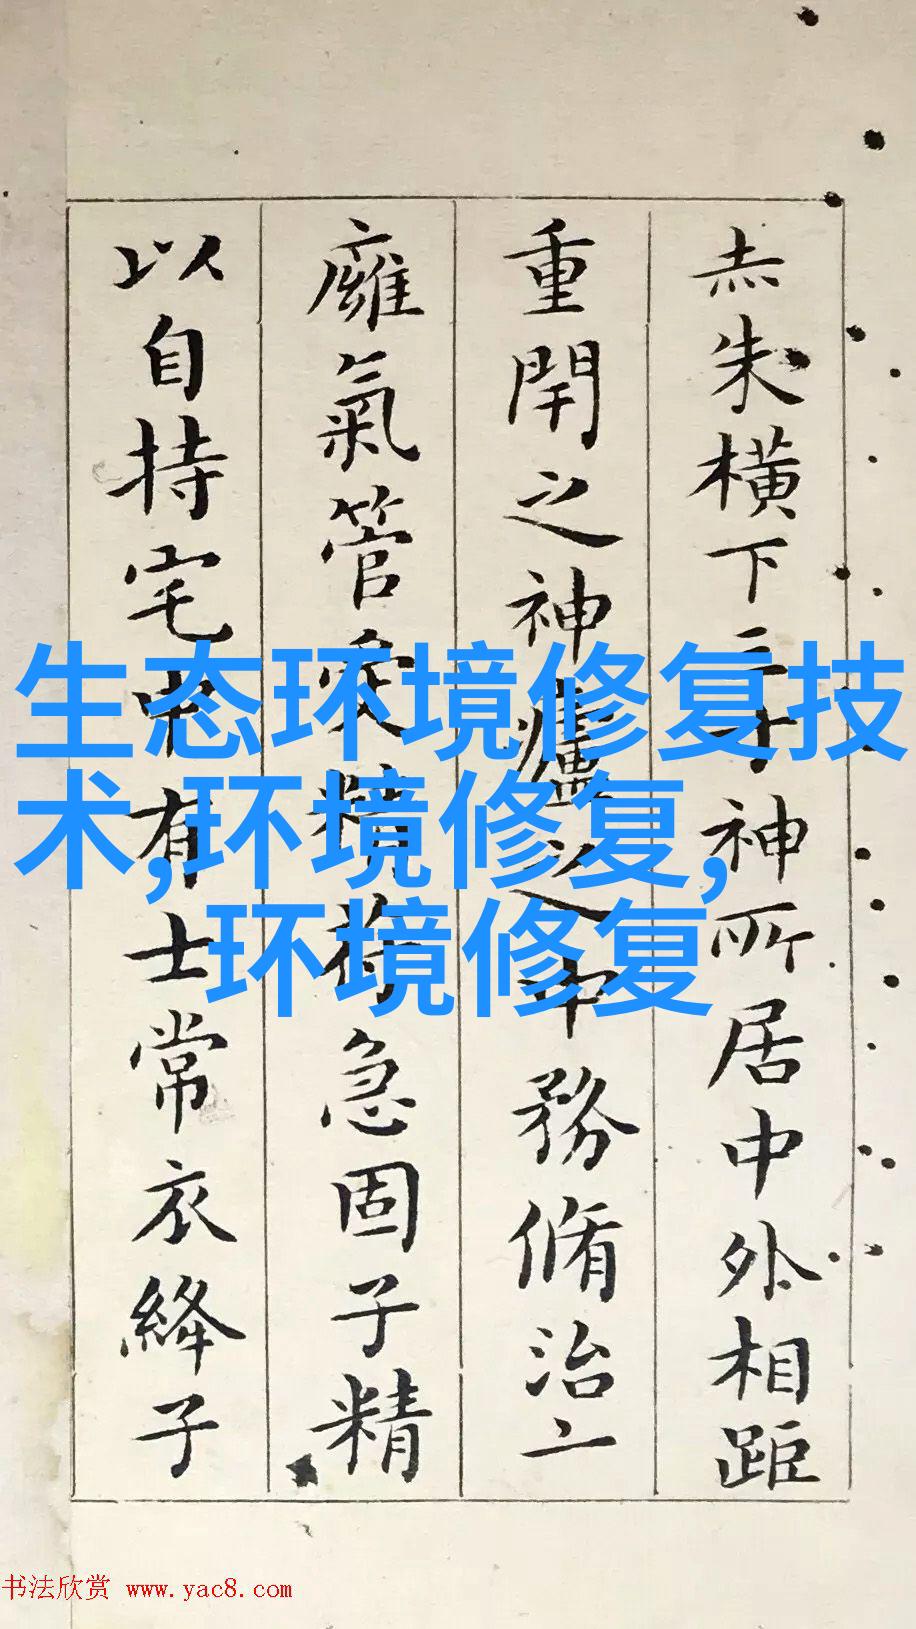 赤朱橫下三寸神所居中外相距
重閈之神廬之中務脩治
癰氣管愛精符急固子精
以自持宅中有士常衣絳子
生态环境修复技
术,环境修复,
环境修复
书法欣赏 www.yac8.com